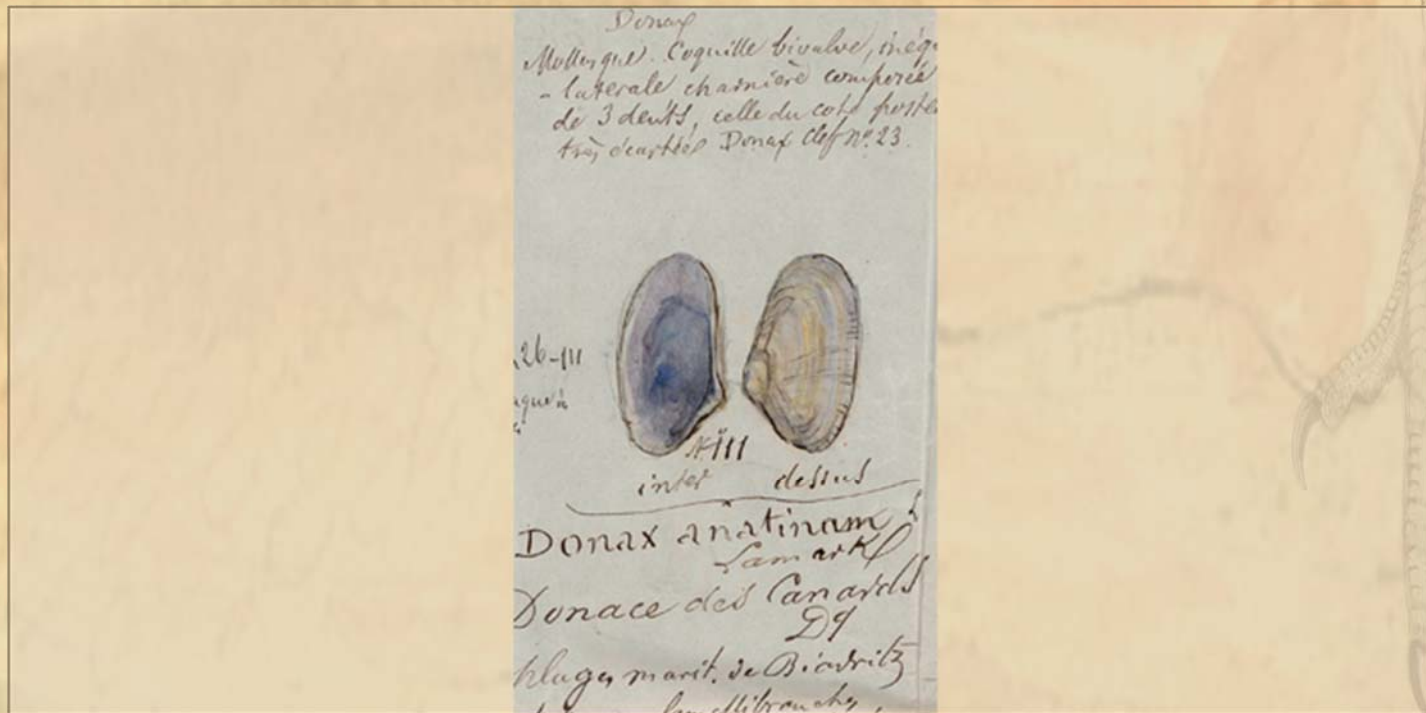 Donax
Mollusque. Coquille bivalve, inéqu
- laterale charnière composée
de 3 dents, celle du coté poste
très écartée Donax Clef nº. 23.
26-III
III
inter dessus
Donax anatinam
Lamark
Donace des Canards
plages marit. de Biadritz
lamellibranches,